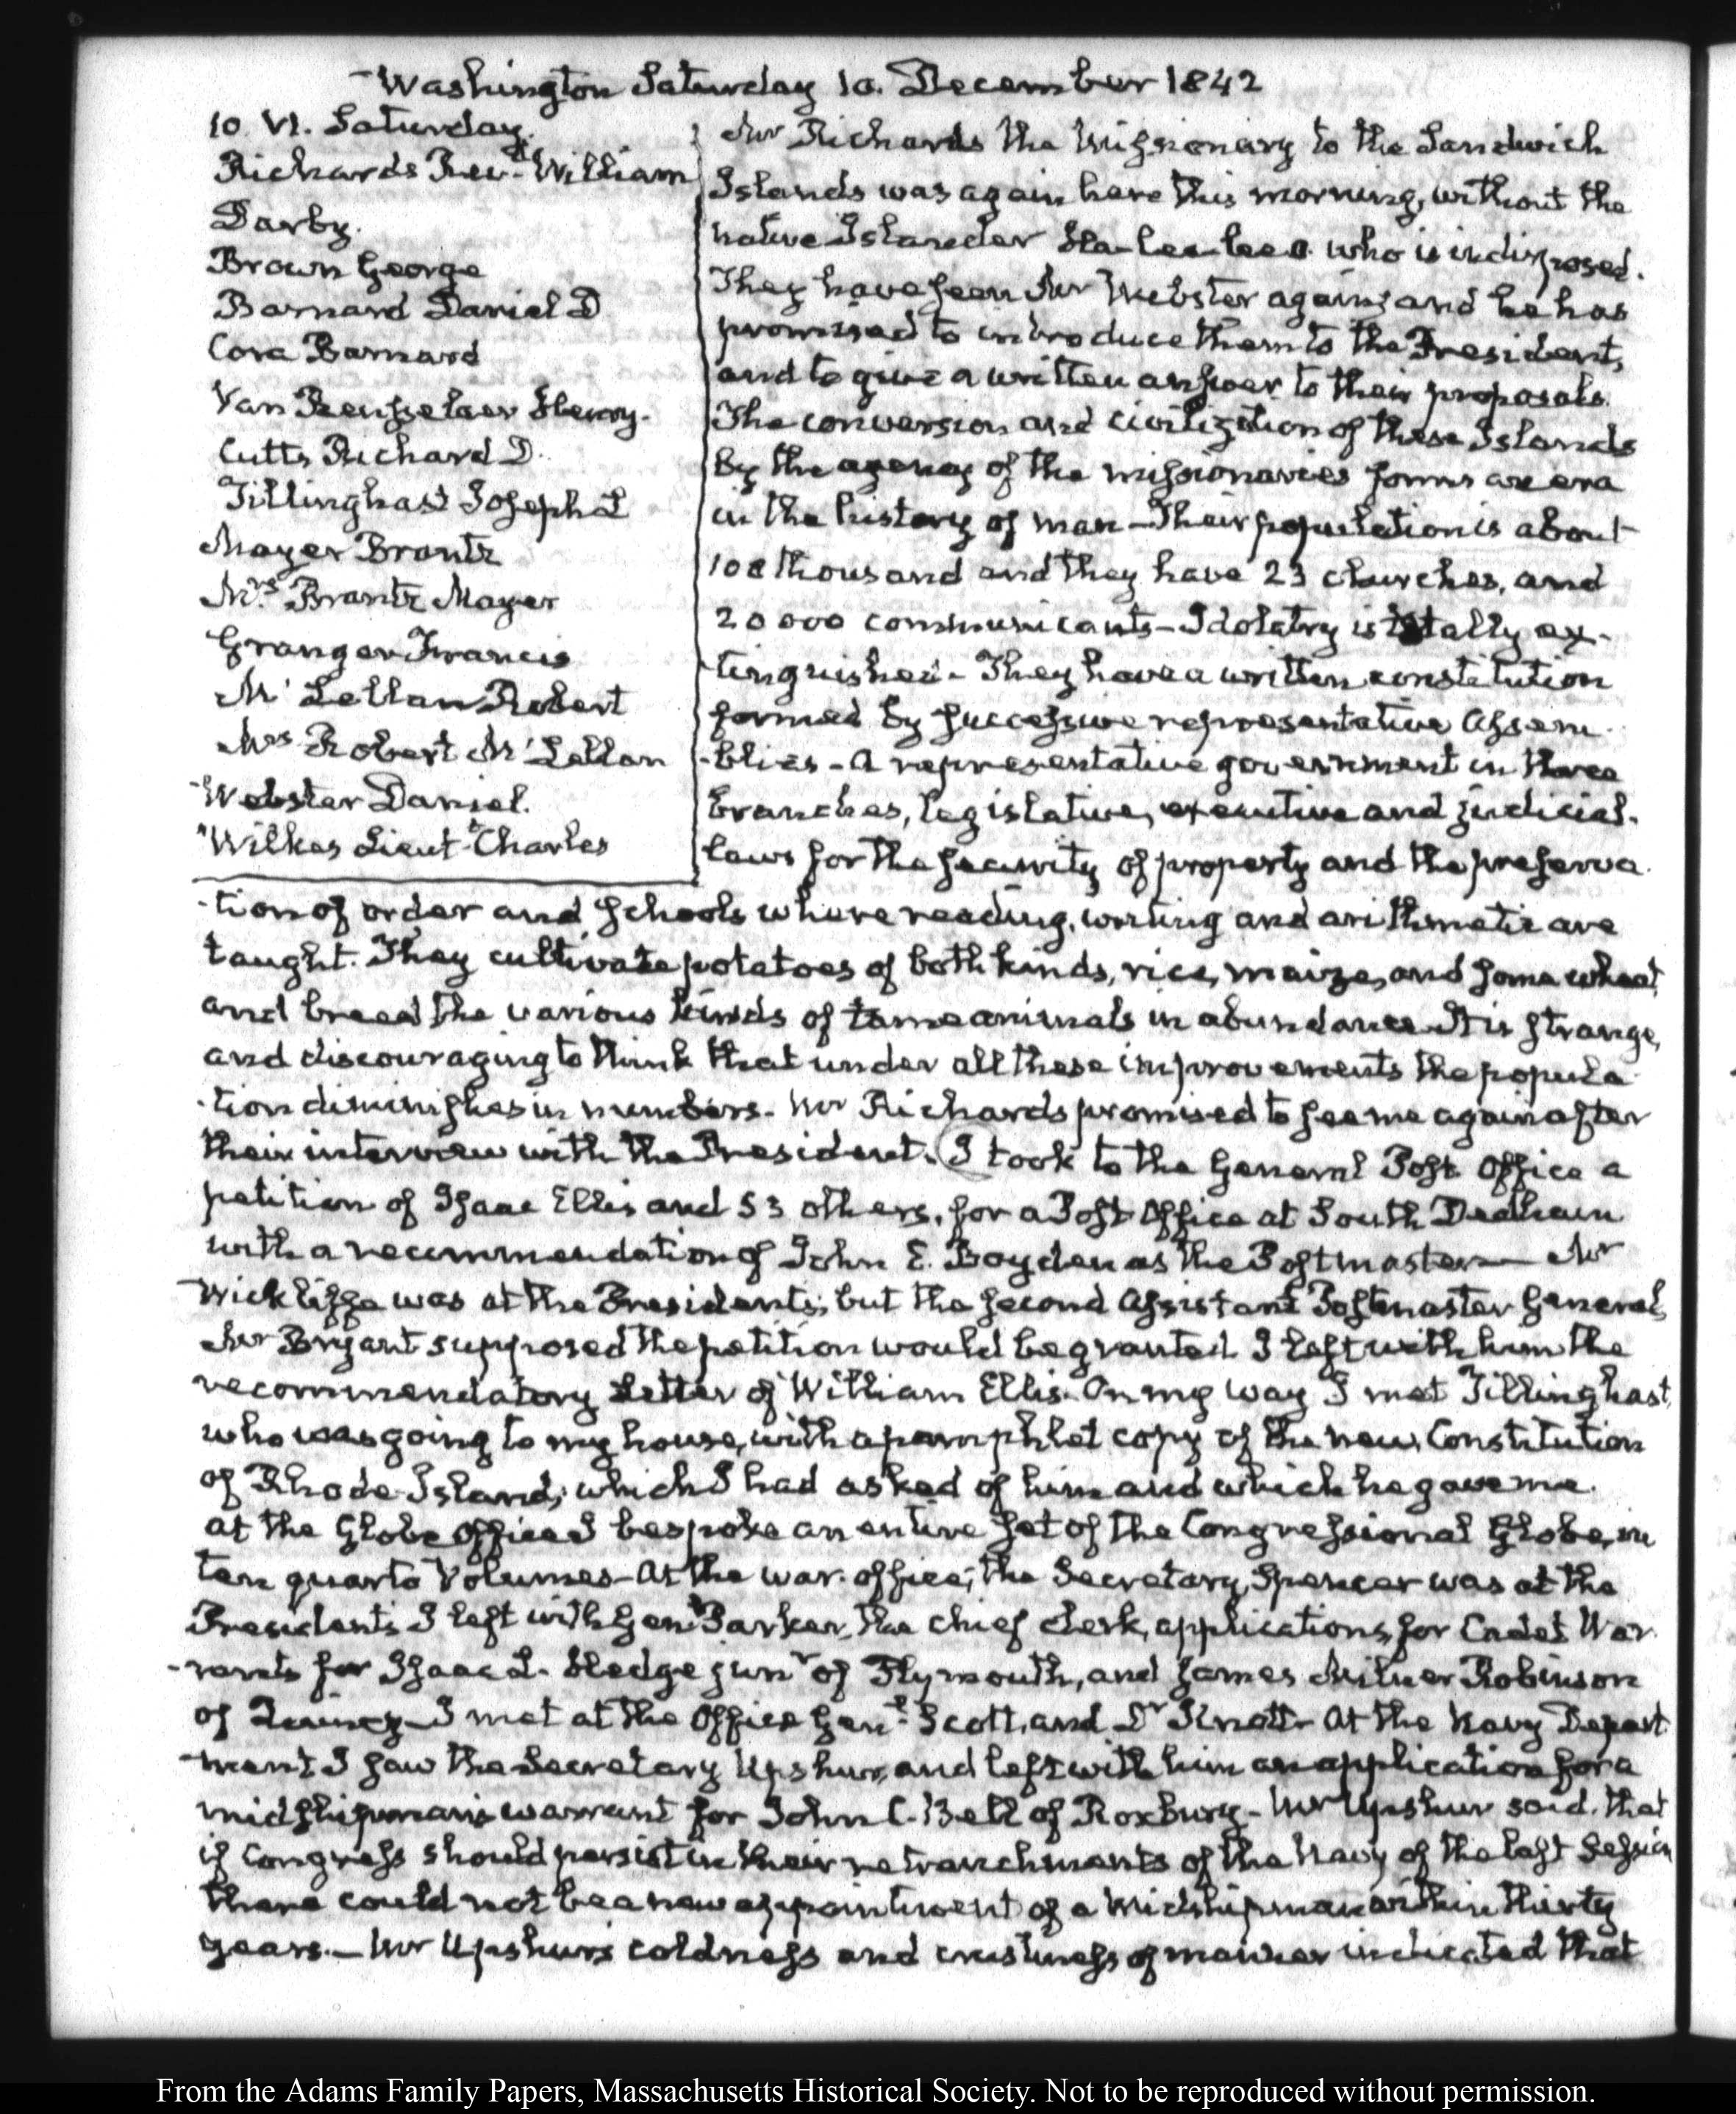 Washington Saturday 10. December 1842
10. VI. Saturday.
Richards Revd. William
Darby.
Brown George
Barnard Daniel D
Cora Barnard
Van Rensselaer Henry.
Cutts Richard D.
Tillinghast Joseph L
Mayer Brantz
Mrs. Brantz Mayer
Granger Francis
Mc'Lellan Robert
Mrs Robert Mc'Lellan
Webster Daniel.
Wilkes Lieutt. Charles
Mr Richards the Missionary to the Sandwich
Islands was again here this morning, without the
native Islander Ha-lee-leo. who is indisposed.
They have seen Mr Webster again; and he has
promised to introduce them to the President,
and to give a written answer to their proposals.
The conversion and civilization of these Islands
by the agency of the missionaries forms an era
in the history of man - Their population is about
108 thousand and they have 23 churches, and
20000 communicants - Idolatry is totally ex-
-tinguished - They have a written constitution
formed by successive representative Assem-
-blies - A representative government in three
branches, legislative, executive and judicial.
laws for the security of property and the preserva-
-tion of order and schools where reading, writing and arithmetic are
taught. They cultivate potatoes of both kinds, rice, maize, and some wheat,
and breed the various kinds of tame animals in abundance. It is strange,
and discouraging to think that under all these improvements the popula-
-tion diminishes in numbers. Mr Richards promised to see me again after
their interview with the President. I took to the General Post Office a
petition of Isaac Ellis and 53 others, for a Post Office at South Dedham
with a recommendation of John E. Boyden as the Postmaster — Mr
Wickliffe was at the Presidents; but the second Assistant Postmaster General,
Mr Bryant supposed the petition would be granted. I left with him the
recommendatory Letter of William Ellis. On my way I met Tillinghast,
who was going to my house, with a pamphlet copy of the new Constitution
of Rhode-Island; which I had asked of him and which he gave me.
At the Globe Office I bespoke an entire set of the Congressional Globe, in
ten quarto Volumes - At the war office; the Secretary, Spencer was at the
Presidents I left with Genl. Parker, the chief clerk, applications for Cadet War-
-rants for Isaac L. Hedge junr of Plymouth, and James Milner Robinson
of Quincy - I met at the Office Genl. Scott, and Dr Knott - At the Navy Depart-
-ment I saw the Secretary Upshur, and left with him an application for a
midshipman's warrant for John C. Bell of Roxbury - Mr Upshur said. that
if Congress should persist in their retrenchments of the Navy of the last Session
there could not be a new appointment of a Midshipman within thirty
years. — Mr Upshur's coldness and crustiness of manner indicated that
From the Adams Family Papers, Massachusetts Historical Society. Not to be reproduced without permission.